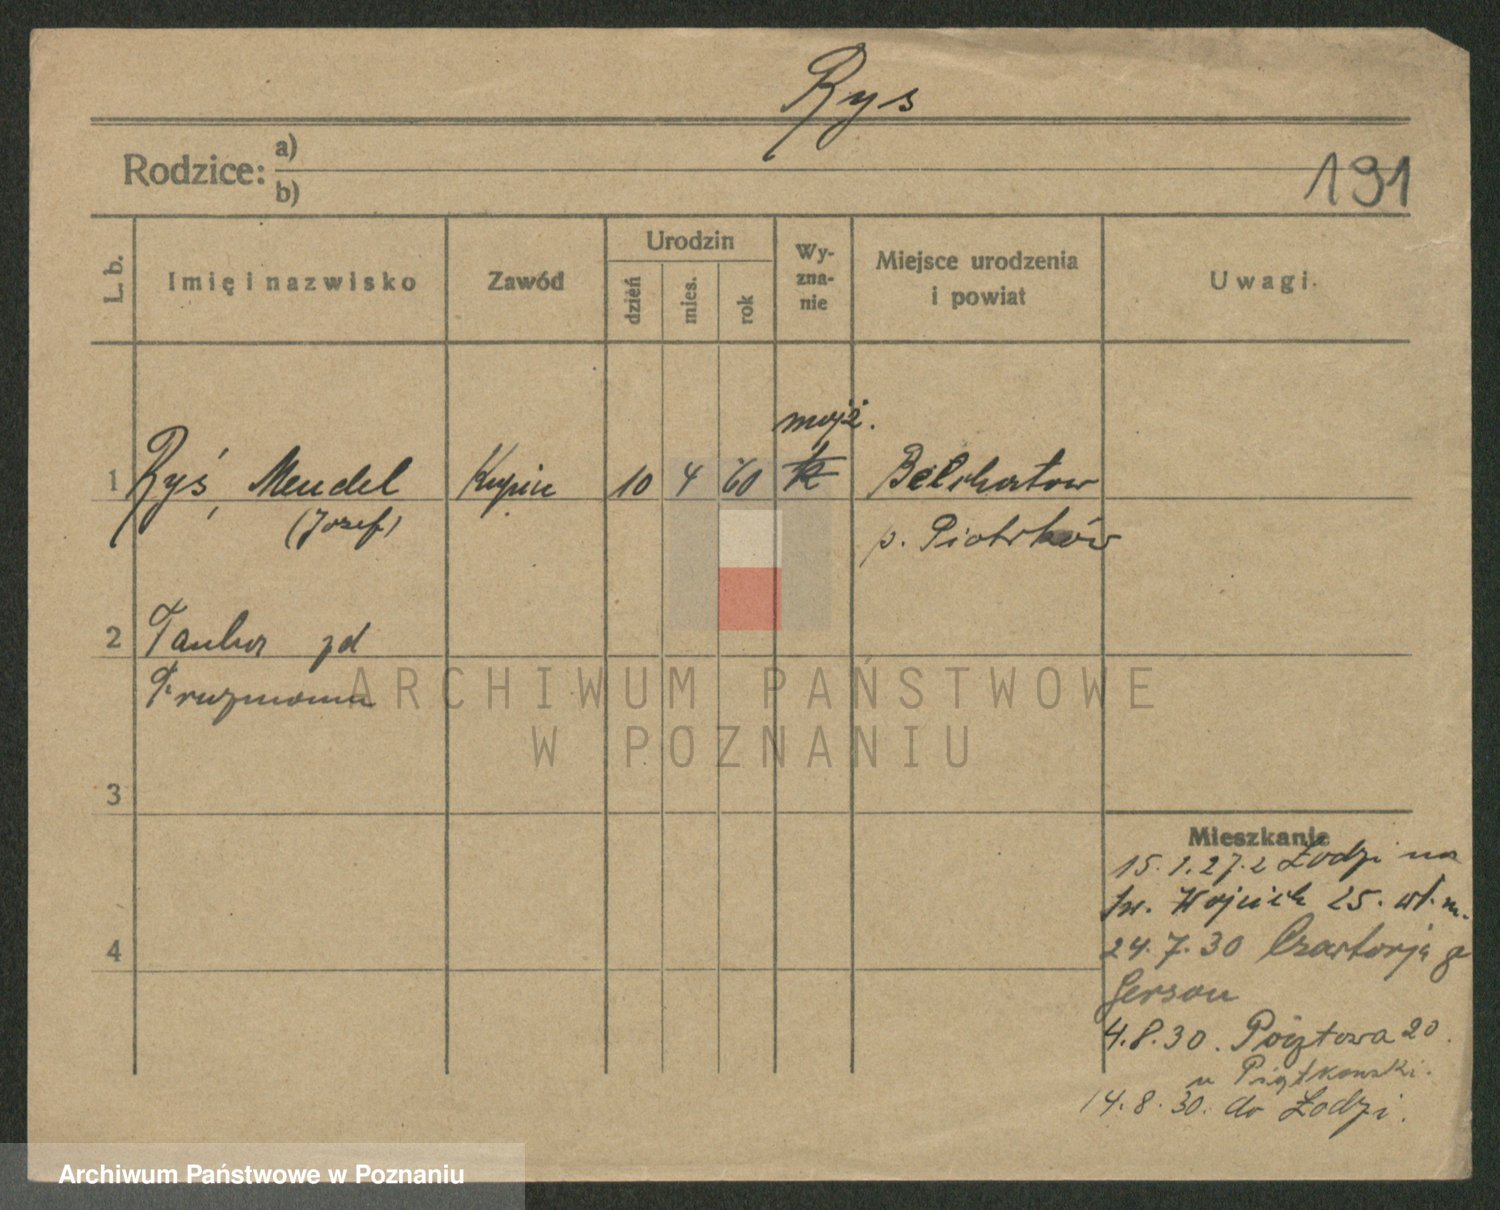 Rys
Rodzice: a)
b)
191
L. b.
Imię i nazwisko
Zawód
Urodzin
dzień
mies.
rok
Wy-
zna-
nie
Miejsce urodzenia
i powiat
Uwagi
mojż.
1 Ryś, Mendel Kupiec 10 4 60 k Bełchatow
(Josef) p. Piotrków
2 Tauba zd
ARCHIWUM PAŃSTWOWE
W POZNANIU
3
Mieszkanie
15.1.27. z Łodzi na
św. Wojciech 25. wł. m.
4
24.7.30
Gerson
4.8.30. Pocztowa 20.
u Piątkowski.
14.8.30. do Łodzi.
Archiwum Państwowe w Poznaniu